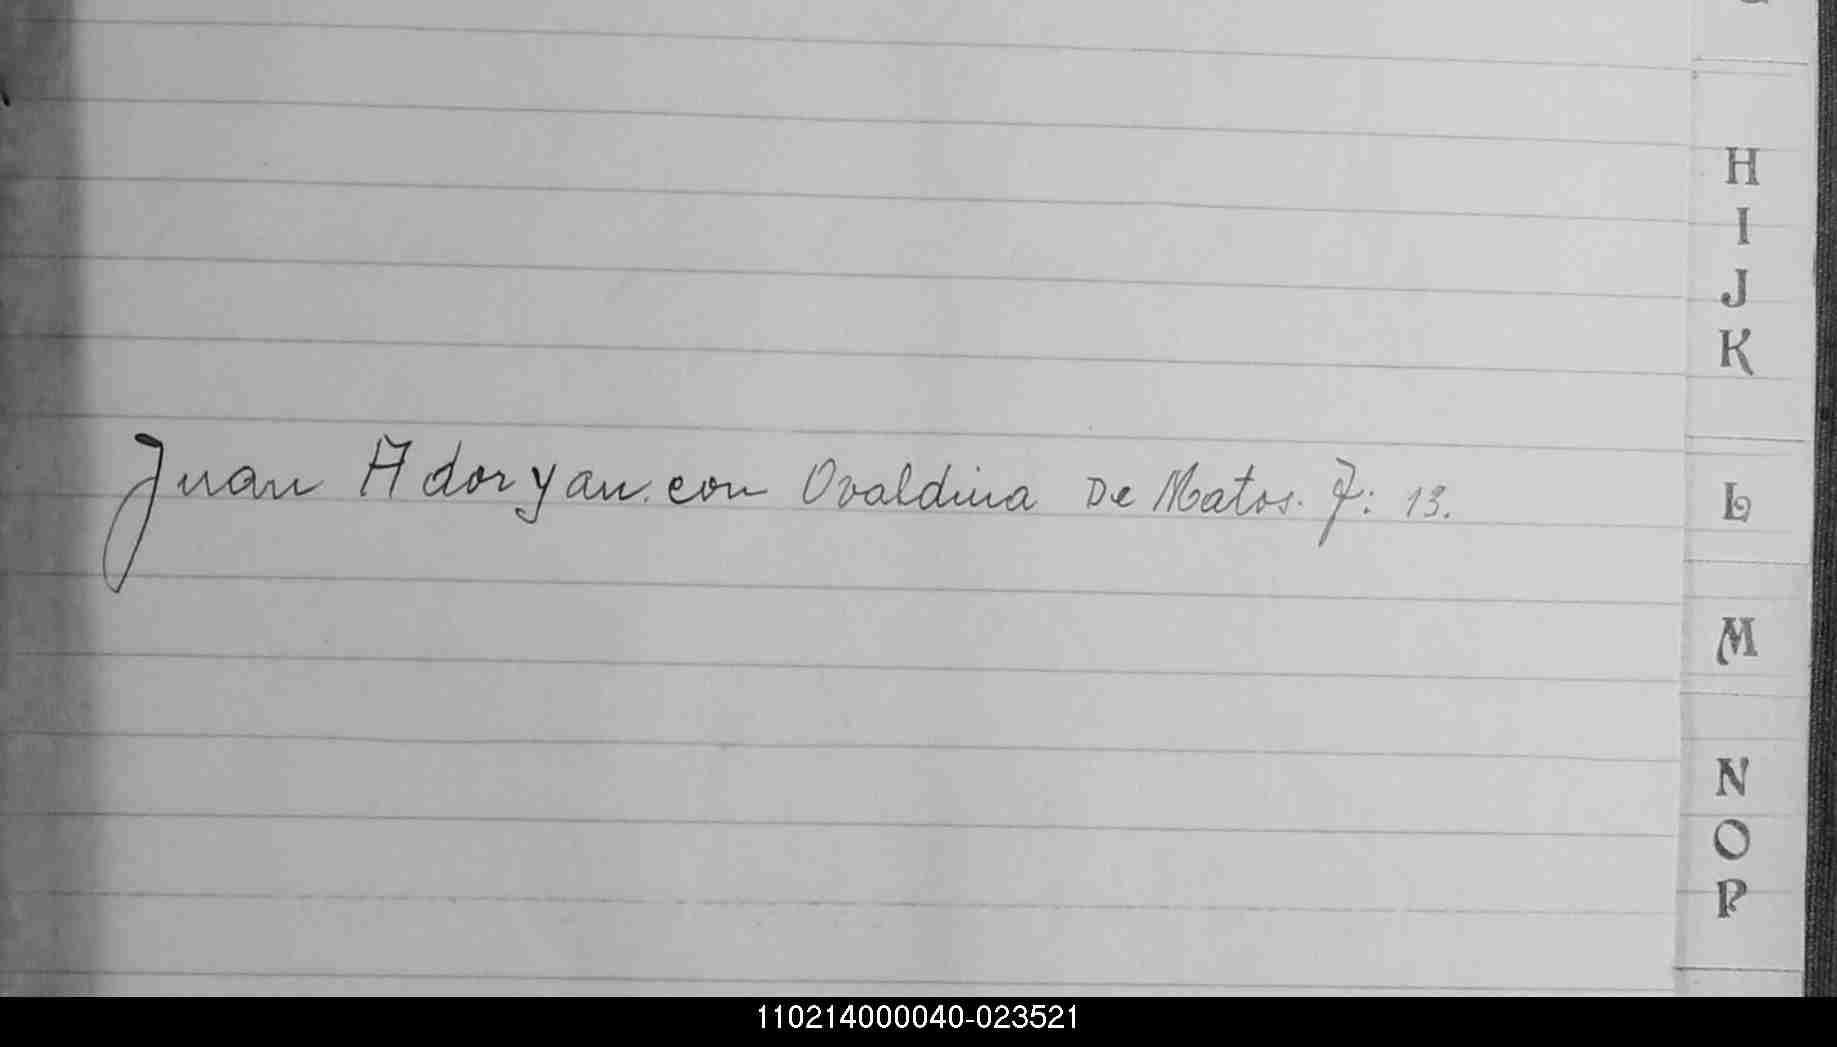 H
I
J
K
Juan Adoryan. con Ovaldina De Matos. F: 13.
L
M
N
O
P
110214000040-023521